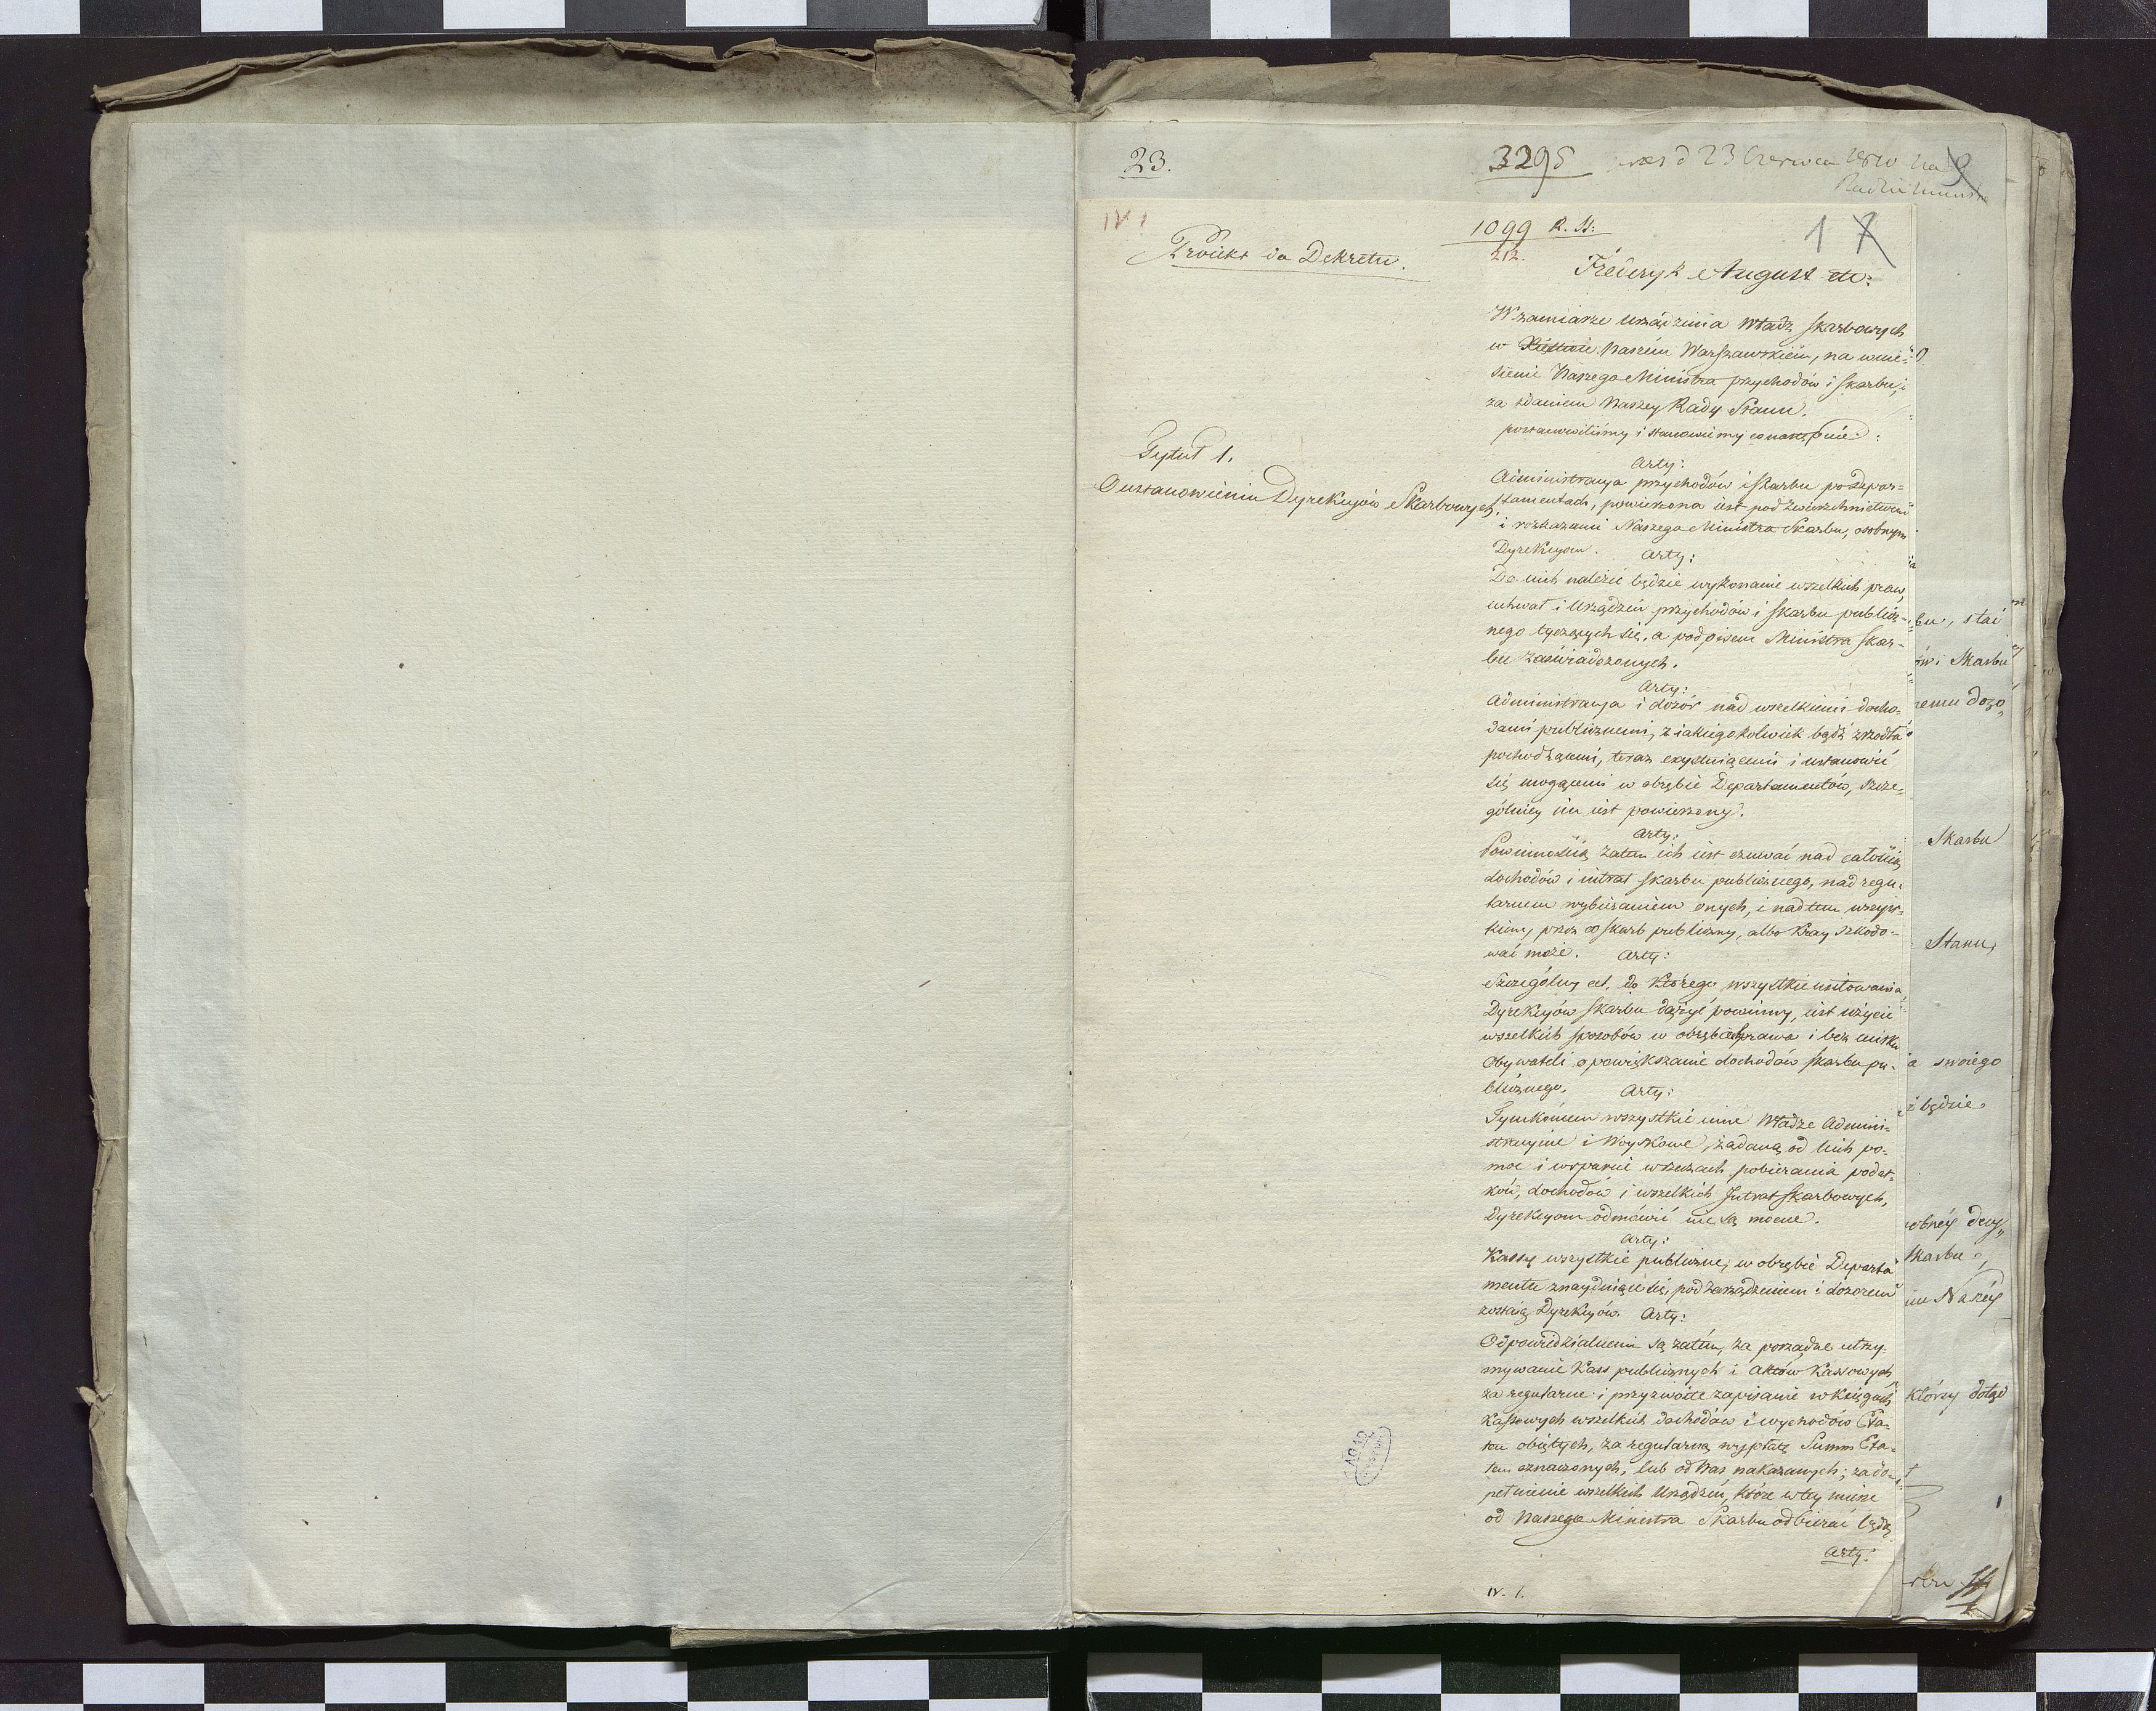 23.
3295
d 23 Czerwca 1810
IV 1
1099 R. St:
1
212.
Proiekt do Dekretu.
Fréderyk August etc:
W zamiarze urządzenia Władz skarbowych
w Xięstwie Naszém Warszawskiém, na wnie-
sienie Naszego Ministra przychodów i skarbu, i
za zdaniem Naszey Rady Stanu.
postanowiliśmy i stanowiemy co następuie:
Tytuł 1.
O ustanowieniu Dyrekcyów Skarbowych.
Arty:
Administracya przychodów i skarbu po Depar-
tamentach, powierzona iest pod zwierzchnictwem
i rozkazami Naszego Ministra Skarbu, osobnym
Dyrekcyom.
Arty:
Do nich należeć będzie wykonanie wszelkich praw,
uchwał i urządzeń przychodów i skarbu publicz-
nego tyczących się, a podpisem Ministra Skar-
bu zaświadczonych.
Arty:
Administracya i dozór nad wszelkiemi docho-
dami publicznemi, z iakiegokolwiek bądź zrzodła
pochodzącemi, teraz exystuiącemi i ustanowić
się mogącemi w obrębie Departamentów, szcze-
gólniey im iest powierzony.
Arty:
Powinnością zatem ich iest czuwać nad całością
dochodów i intrat skarbu publicznego, nad regu-
larnem wybieraniem onych, i nad tem wszyst-
kiem, przez co skarb publiczny, albo Kray szkodo-
wać może.
Arty:
Szczególny cel, do którego wszystkie usiłowania
Dyrekcyów skarbu dążyć powinny, iest użycie
wszelkich sposobów w obrębie prawa i bez ucisku
Obywateli o powiększanie dochodów skarbu pu-
blicznego.
Arty:
Tymkońcem wszystkie inne Władze Admini-
stracyine i Woyskowe, żądaną od nich po-
moc i wsparcie w rzeczach pobierania podat-
ków, dochodów i wszelkich Intrat skarbowych,
Dyrekcyom odmówić nie są mocne.
Arty:
Kassy wszystkie publiczne, w obrębie Departa
mentu znayduiące się, pod zarządzeniem i dozorem
zostaią Dyrekcyów.
Arty:
Odpowiedzialnemi są zatém, za porządne utrzy-
mywanie Kass publicznych i Aktów Kassowych
za regularne i przyzwoite zapisanie w księgach
Kassowych wszelkich dochodów i wychodów Eta-
tem obiętych, za regularną wypłatę Summ Eta-
tem oznaczonych, lub od Nas nakazanych; za do-
pełnienie wszelkich Urządzeń, które w tey mierze
od Naszego Ministra Skarbu odbierać będą.
Arty:
IV. 1.
bu, stai
ów i Skarbu
remu dozo
Skarbu
Stanu,
a swoiego
ż będzie.
Skarbu.
im Naszéy
którzy dotąd